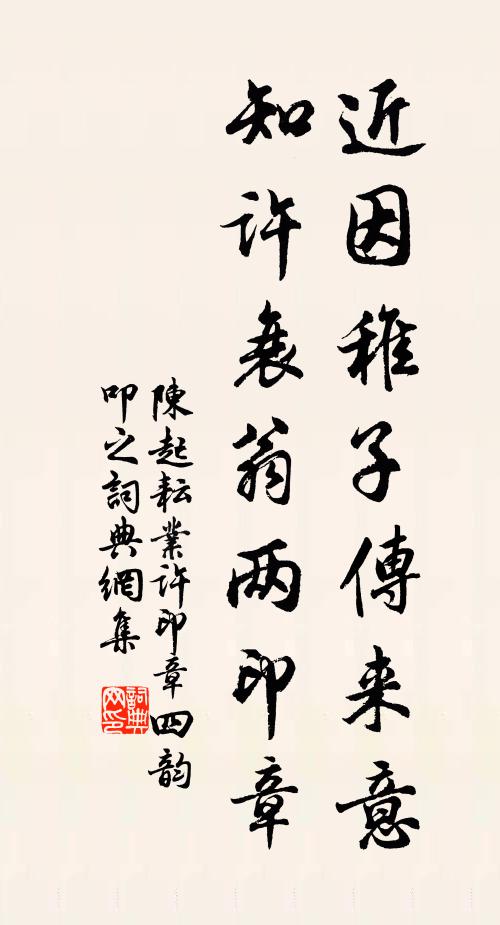 近因稚子傳来意
知許衰翁两印章
陳起耘業許印章四韵
叩之詞典網集
詞典网印